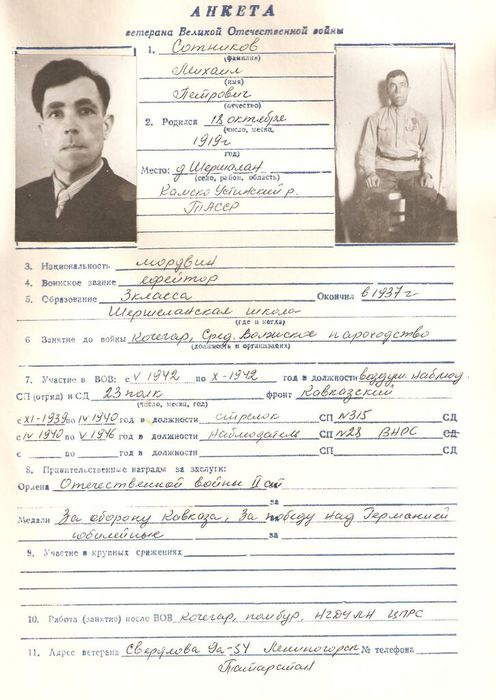 АНКЕТА
ветерана Великой Отечественной войны
1. Сотников
(фамилия)
Михаил
(имя)
Петрович
(отчество)
2. Родился 18 октября
(число, месяц,
1919г
год)
Место: д Шершалан
(село, район, область)
Камско Устинский р.
ТАССР
3. Национальность мордвин
4. Воинское звание ефрейтор
5. Образование 3 класса Окончил в 1937 г
Шершеланская школа
(где и когда)
6 Занятие до войны Кочегар, Сред. Волжское пароходство
(должность и организация)
7. Участие в ВОВ: с V 1942 по X-1942 год в должности воздуш. наблюд.
СП (отряд) и СД 23 полк фронт Кавказский
(число, месяц, год)
с XI-1939 по IV 1940 год в должности стрелок СП N315 СД
с IV 1940 по V 1946 год в должности наблюдатель СП N28 ВНОС СД
с по год в должности СП СД
8. Правительственные награды за заслуги:
Ордена Отечественной войны II ст
за
Медали За оборону Кавказа, За победу над Германией
юбилейные за
9. Участие в крупных сражениях
10. Работа (занятие) после ВОВ кочегар, помбур, НГДУ ЛН ЦПРС
11. Адрес ветерана Свердлова 9а-54 Лениногорск № телефона
Татарстан